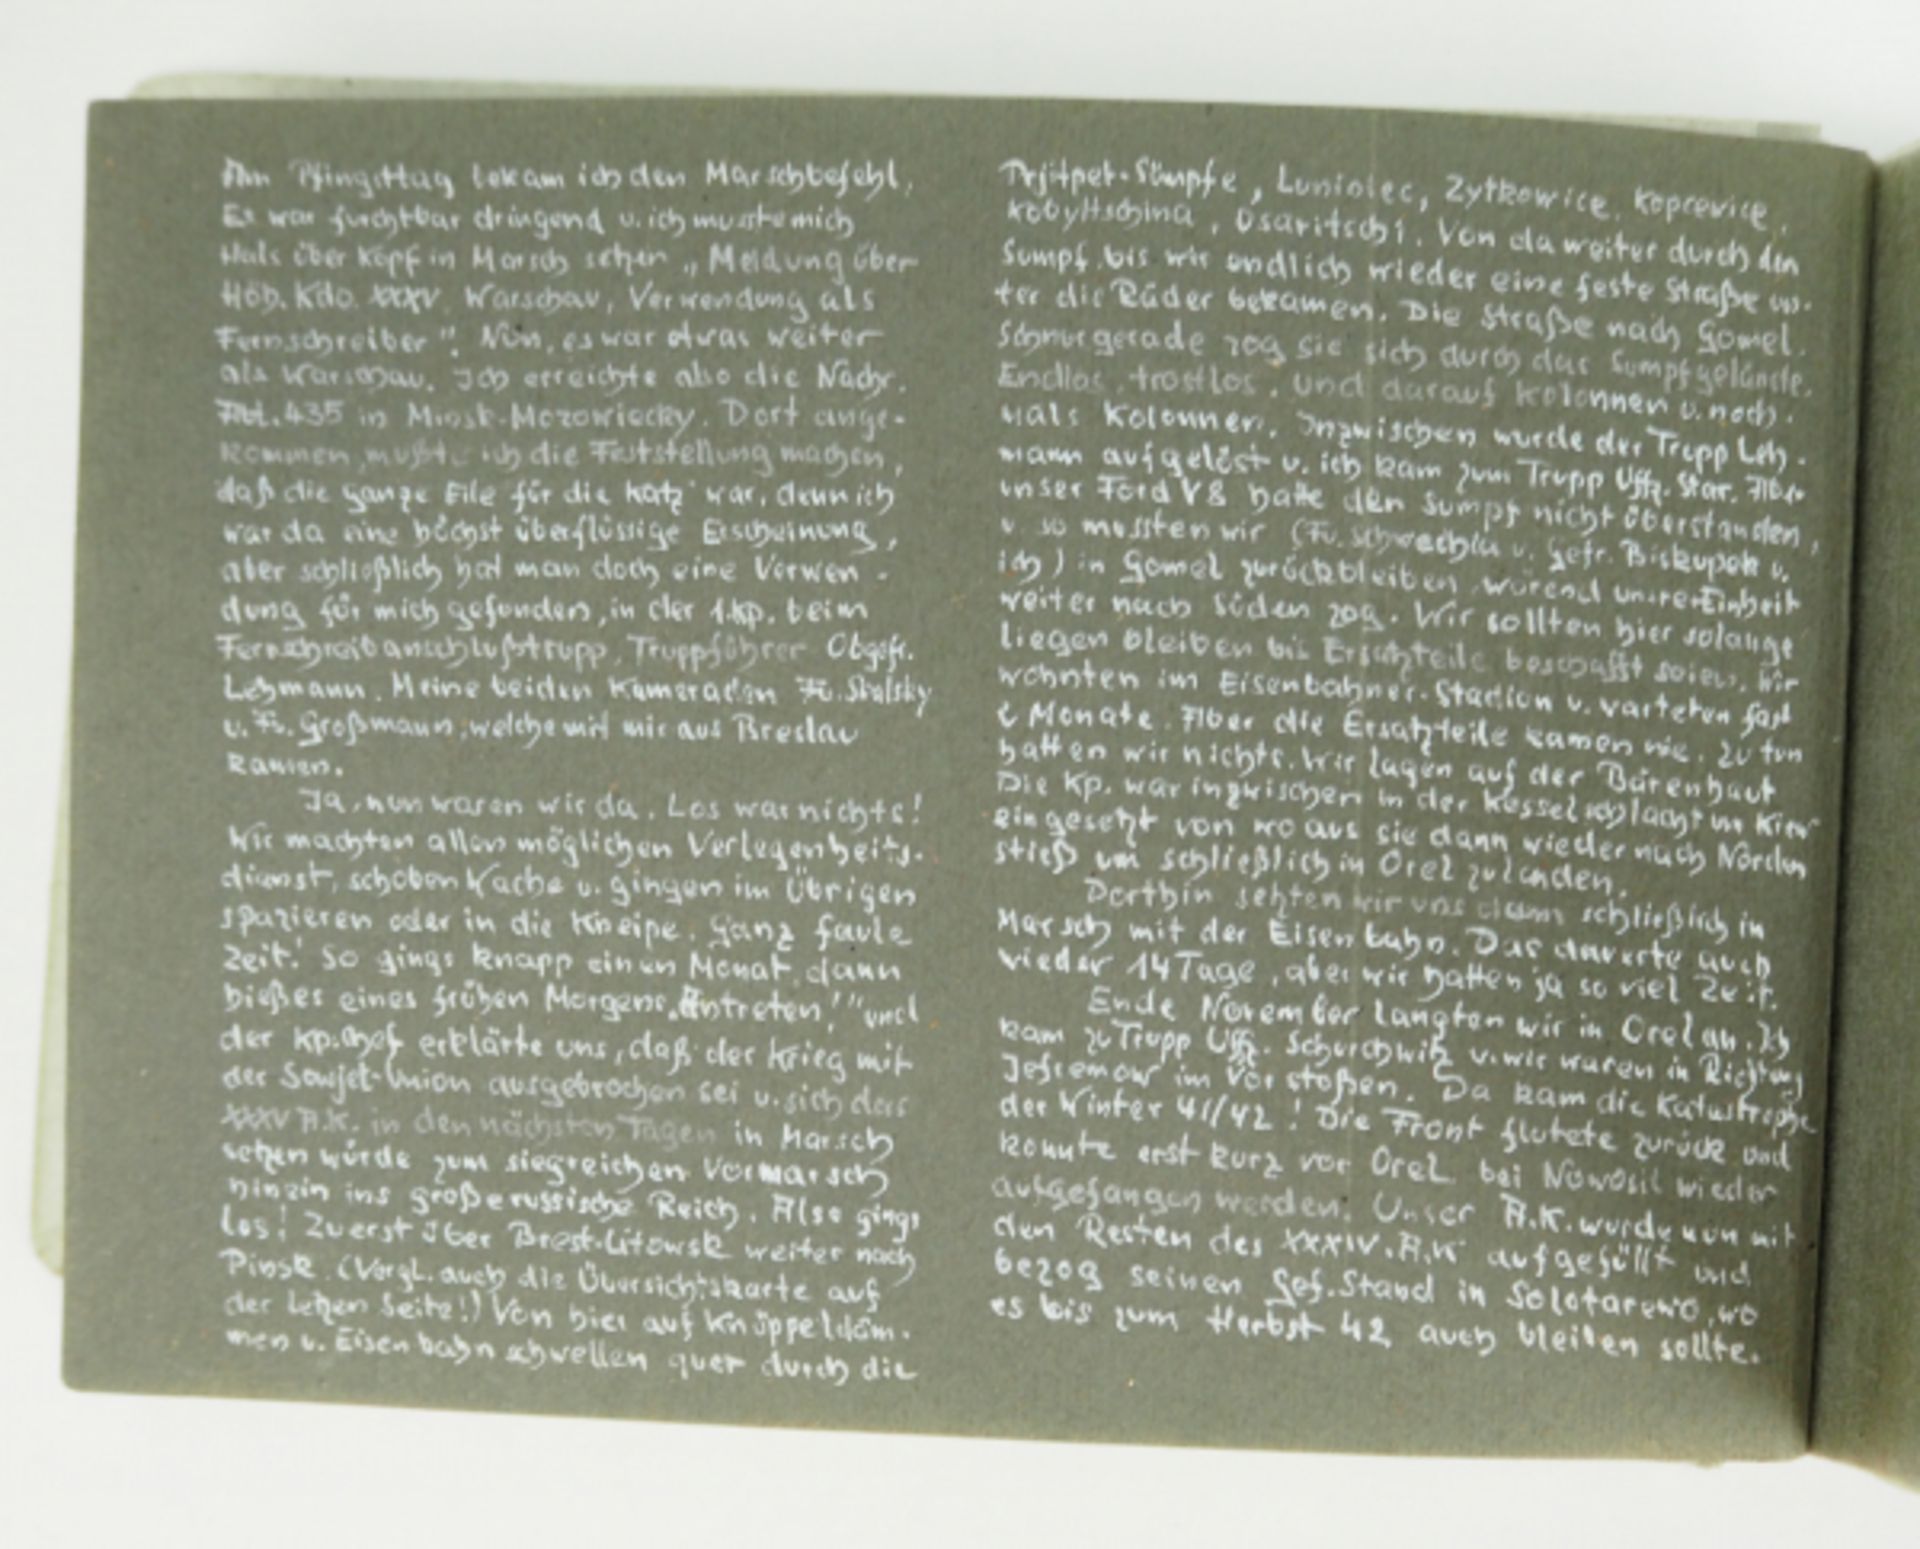 Am Pfingsttag bekam ich den Marschbefehl.
Es war furchtbar dringend u. ich musste mich
Hals über Kopf in Marsch setzen „Meldung über
Höh. Kdo. XXXV. Warschau, Verwendung als
Fernschreiber". Nun, es war etwas weiter
als Warschau. Ich erreichte also die Nachr.
Abt. 435 in Minsk-Mozowiecky. Dort ange-
kommen, mußte ich die Feststellung machen,
daß die ganze Eile für die Katz war, denn ich
war da eine höchst überflüssige Erscheinung,
aber schließlich hat man doch eine Verwen-
dung für mich gefunden, in der 1. Kp. beim
Fernschreibanschlußtrupp, Truppführer Obgefr.
Lehmann. Meine beiden Kameraden Fu. Skalsky
u. Fu. Großmann, welche mit mir aus Breslau
kamen.
Ja, nun waren wir da. Los war nichts!
Wir machten allen möglichen Verlegenheits-
dienst, schoben Wache u. gingen im Übrigen
spazieren oder in die Kneipe. Ganz faule
Zeit! So gings knapp einen Monat, dann
hieß es eines frühen Morgens „Antreten!" und
der Kp. Chef erklärte uns, daß der Krieg mit
der Sowjet-Union ausgebrochen sei u. sich das
XXXV A.K. in den nächsten Tagen in Marsch
setzen würde zum siegreichen Vormarsch
hinein ins große russische Reich. Also gings
los! Zuerst über Brest-Litowsk weiter nach
Pinsk. (Vergl. auch die Übersichtskarte auf
der letzen Seite!) Von hier auf Knüppeldäm-
men u. Eisenbahnschwellen quer durch die
Prjitpet-Sümpfe, Luniniec, Zytkowice, Koprevice,
Kobyltschina, Osaritschi. Von da weiter durch den
Sumpf, bis wir endlich wieder eine feste Straße un-
ter die Räder bekamen. Die Straße nach Gomel.
Schnurgerade zog sie sich durch das Sumpfgelände.
Endlos, trostlos, und darauf Kolonnen u. noch-
mals Kolonnen. Inzwischen wurde der Trupp Leh-
mann aufgelöst u. ich kam zum Trupp Uffz. Star. Aber
unser Ford V8 hatte den Sumpf nicht überstanden,
u. so mussten wir (Fu. u. Gefr. Biskupek u.
ich) in Gomel zurückbleiben, wärend unsere Einheit
weiter nach Süden zog. Wir sollten hier solange
liegen bleiben bis Ersatzteile beschafft seien. Wir
wohnten im Eisenbahner-Stadion u. warteten fast
2 Monate. Aber die Ersatzteile kamen nie. Zu tun
hatten wir nichts. Wir lagen auf der Bärenhaut
Die Kp. war inzwischen in der Kesselschlacht um Kiew
eingesetzt von wo aus sie dann wieder nach Norden
stieß um schließlich in Orel zu landen.
Dorthin setzten wir uns dann schließlich in
Marsch mit der Eisenbahn. Das dauerte auch
wieder 14 Tage, aber wir hatten ja so viel Zeit.
Ende November langten wir in Orel an. Ich
kam zu Trupp Uffz. Schurchwitz u. wir waren in Richtung
Jefremow im Vorstoßen. Da kam die Katastrophe
der Winter 41/42! Die Front flutete zurück und
konnte erst kurz vor Orel bei Nowosil wieder
aufgefangen werden. Unser A.K. wurde nun mit
den Resten des XXXIV. A.K. aufgefüllt und
bezog seinen Gef. Stand in Solotarewo, wo
es bis zum Herbst 42 auch bleiben sollte.